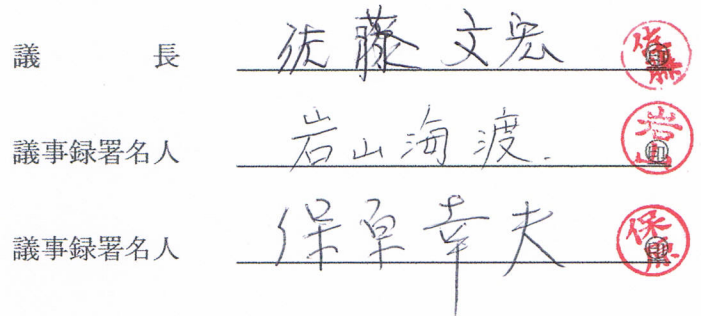 議　長　佐藤文宏　佐藤　㊞
議事録署名人　岩山海渡.　岩山　㊞
議事録署名人　保原幸夫　保原　㊞